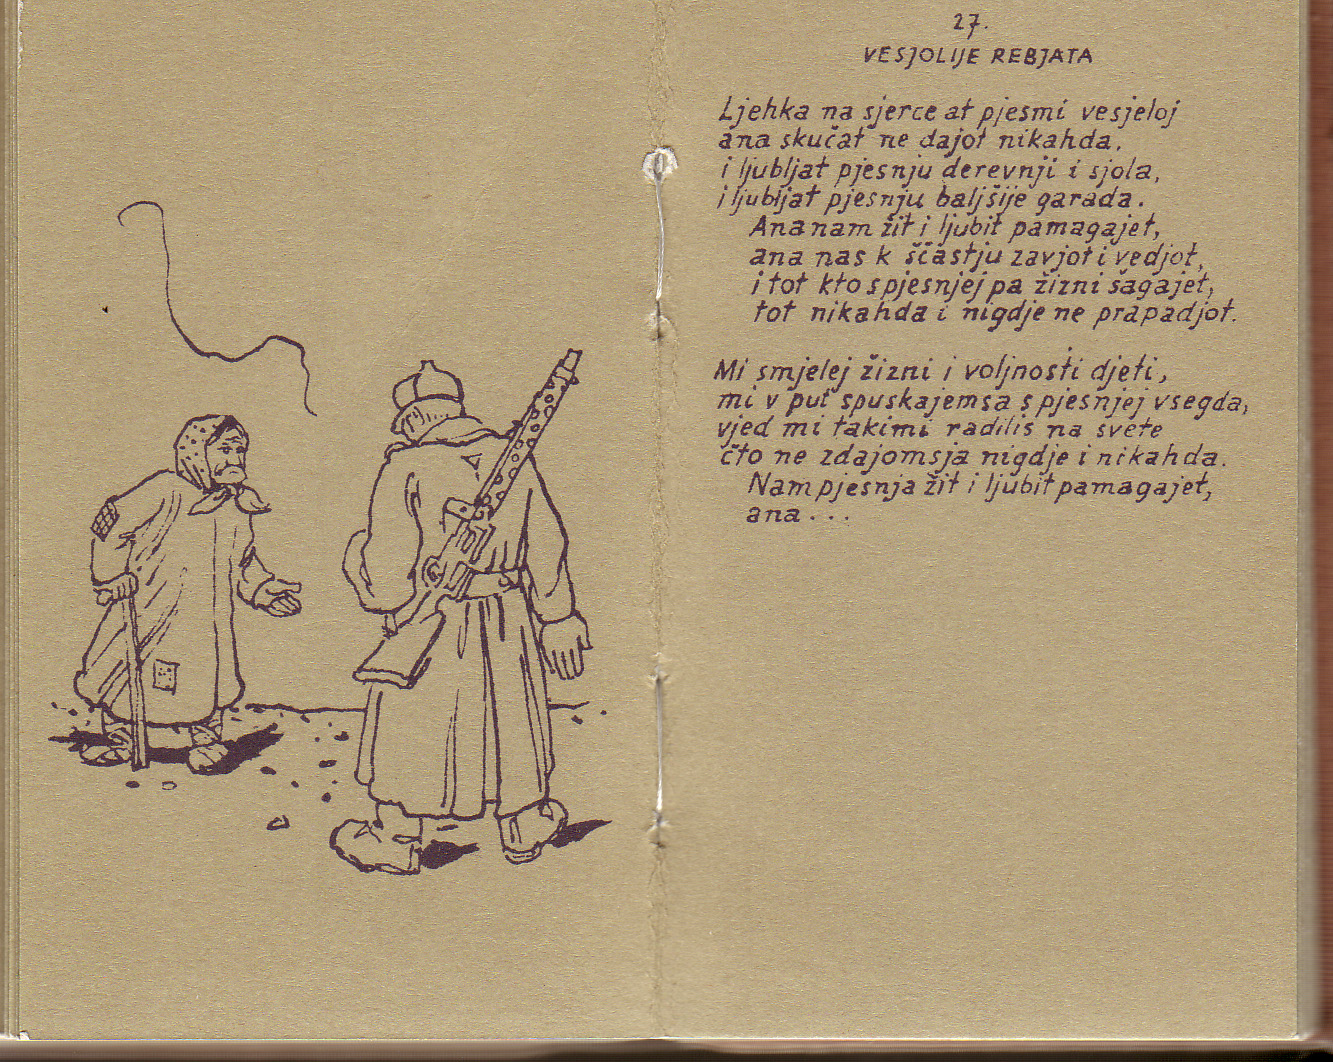 27.
VESJOLIJE REBJATA
Ljehka na sjerce at pjesmi vesjeloj
ana skučat ne dajot nikahda,
i ljubljat pjesnju derevnji i sjola,
i ljubljat pjesnju baljšije garada.
Ana nam žit i ljubit pamagajet,
ana nas k ščastju zavjot i vedjot,
i tot kto spjesnjej pa žizni šagajet,
tot nikahda i nigdje ne prapadjot.
Mi smjelej žizni i voljnosti djeti,
mi v put spuskajemsa s pjesnjej vsegda,
vjed mi takimi radilis na svete
čto ne zdajomsja nigdje i nikahda.
Nam pjesnja žit i ljubit pamagajet,
ana...